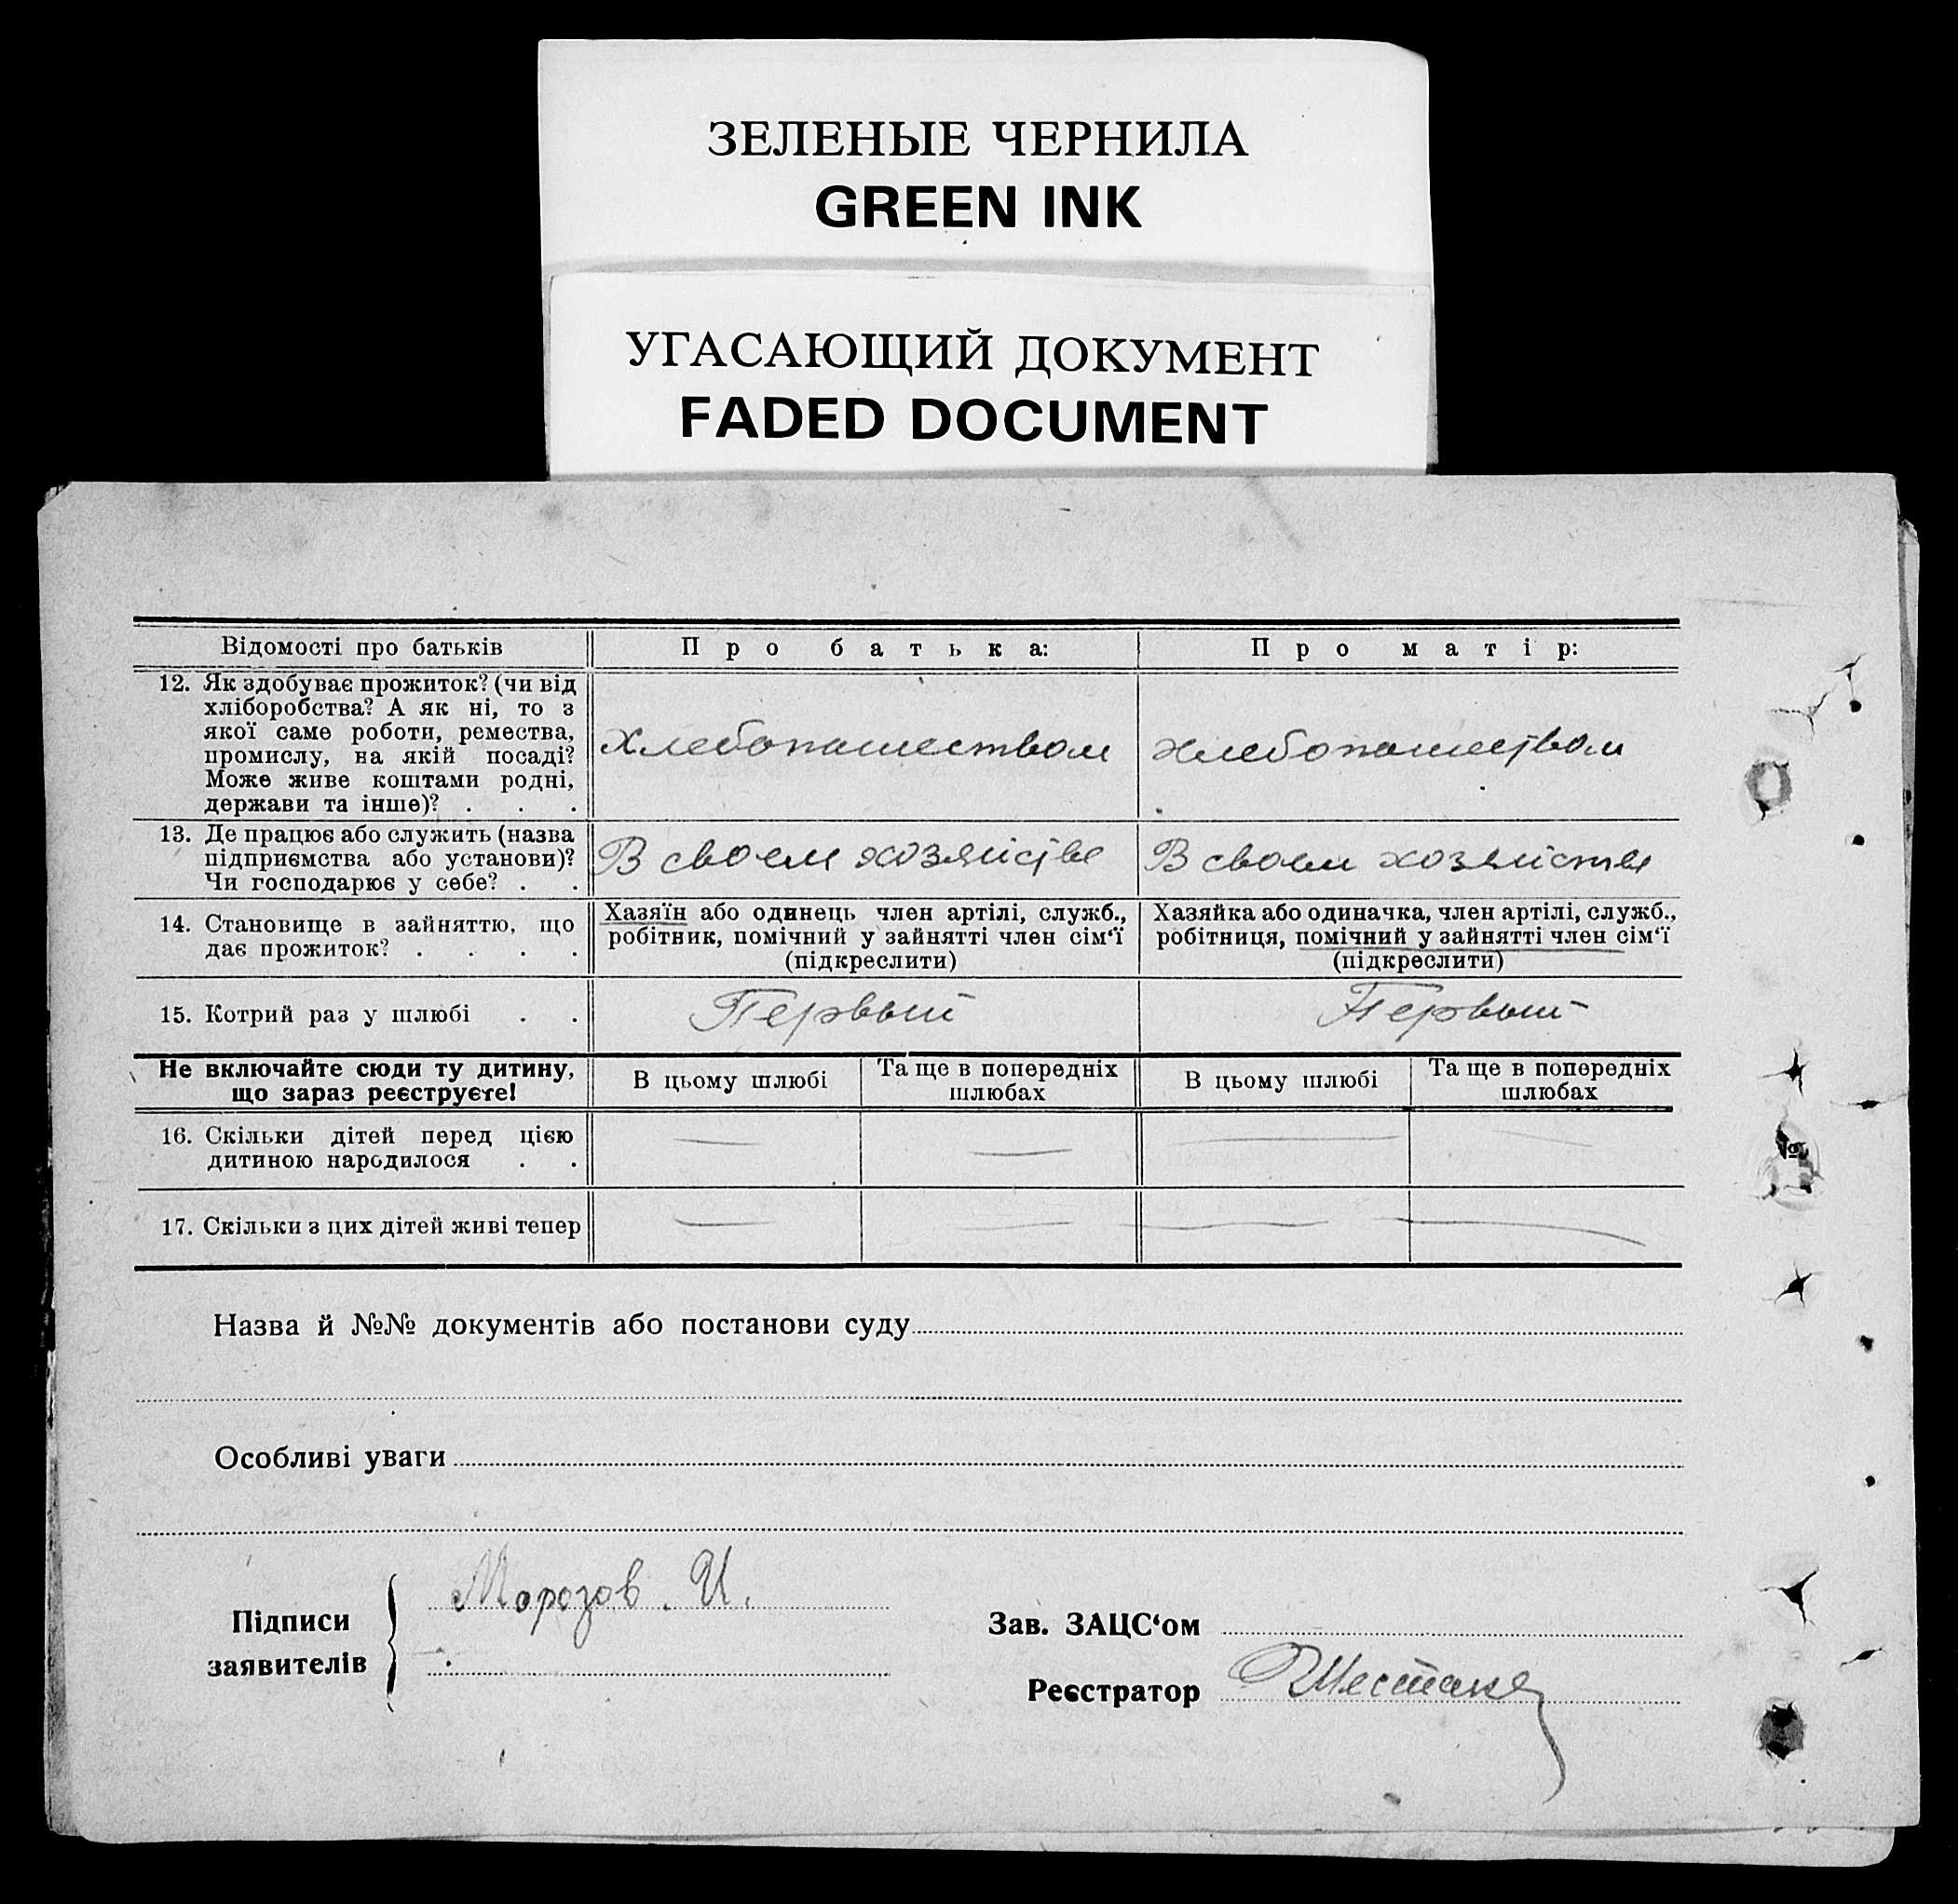 ЗЕЛЕНЫЕ ЧЕРНИЛА
GREEN INK
УГАСАЮЩИЙ ДОКУМЕНТ
FADED DOCUMENT
Відомості про батьків
Про батька:
Про матір:
12. Як здобуває прожиток? (чи від
хліборобства? А як ні, то з
якої саме роботи, ремества,
промислу, на якій посаді?
Може живе коштами родні,
держави та інше)? . . .
Хлебопашеством
хлебопашеством
13. Де працює або служить (назва
підприємства або установи)?
Чи господарює у себе? . .
В своем хозяйстве
В своем хозяйстве
14. Становище в зайняттю, що
дає прожиток? . . . .
Хазяїн або одинець член артілі, служб.,
робітник, помічний у зайнятті член сім‘ї
(підкреслити)
Хазяйка або одиначка, член артілі, служб.,
робітниця, помічний у зайнятті член сім‘ї
(підкреслити)
15. Котрий раз у шлюбі . .
Первый
Первый
Не включайте сюди ту дитину,
що зараз реєструєте!
В цьому шлюбі
Та ще в попередніх
шлюбах
В цьому шлюбі
Та ще в попередніх
шлюбах
16. Скільки дітей перед цією
дитиною народилося . .
— — — —
17. Скільки з цих дітей живі тепер
— — — —
Назва й №№ документів або постанови суду
Особливі уваги
Підписи
заявителів
Морозов. И.
Зав. ЗАЦС‘ом
Реєстратор
№